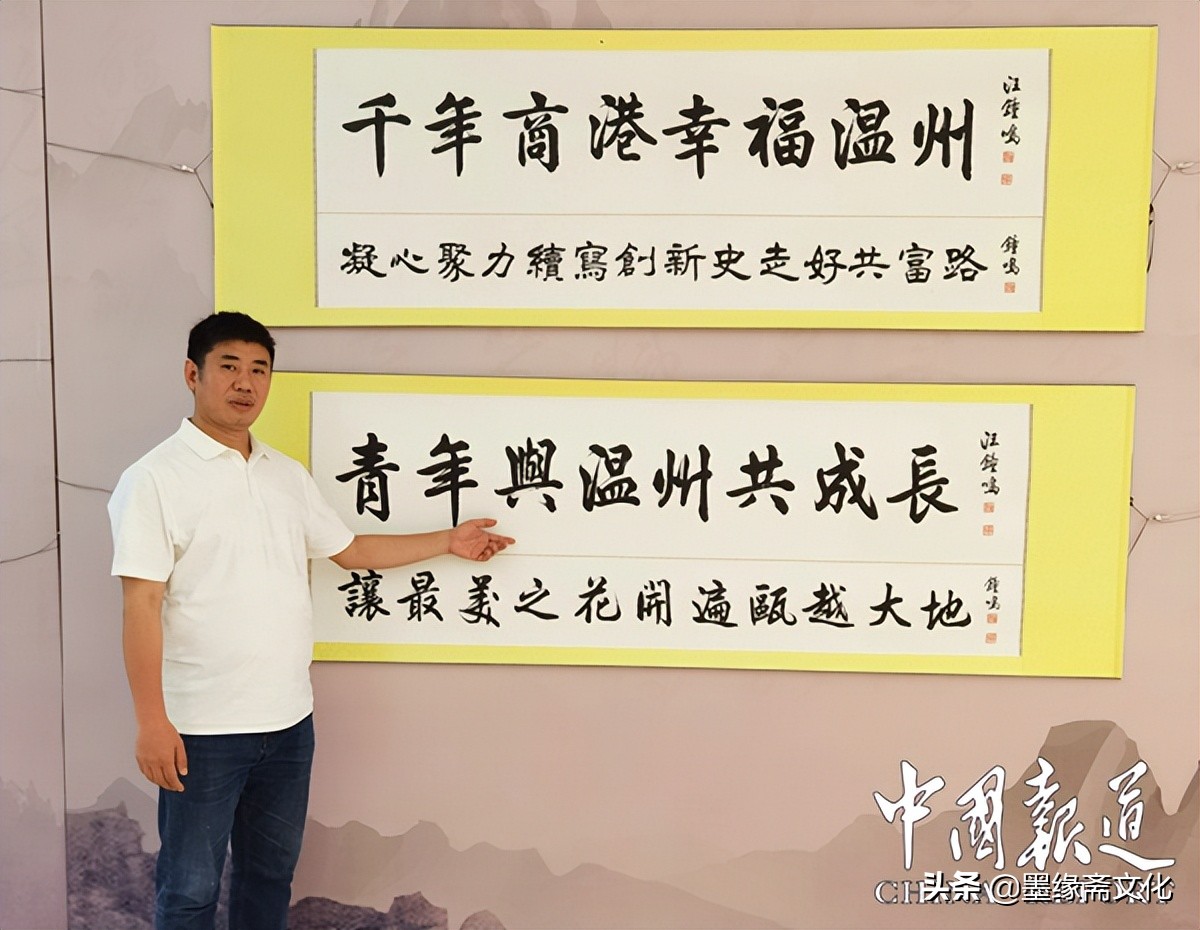 千年商港幸福温州
汪鐘鳴
凝心聚力續寫創新史走好共富路
鐘鳴
青年與温州共成長
汪鐘鳴
讓最美之花開遍甌越大地
鐘鳴
中國報道
头条 @墨缘斋文化